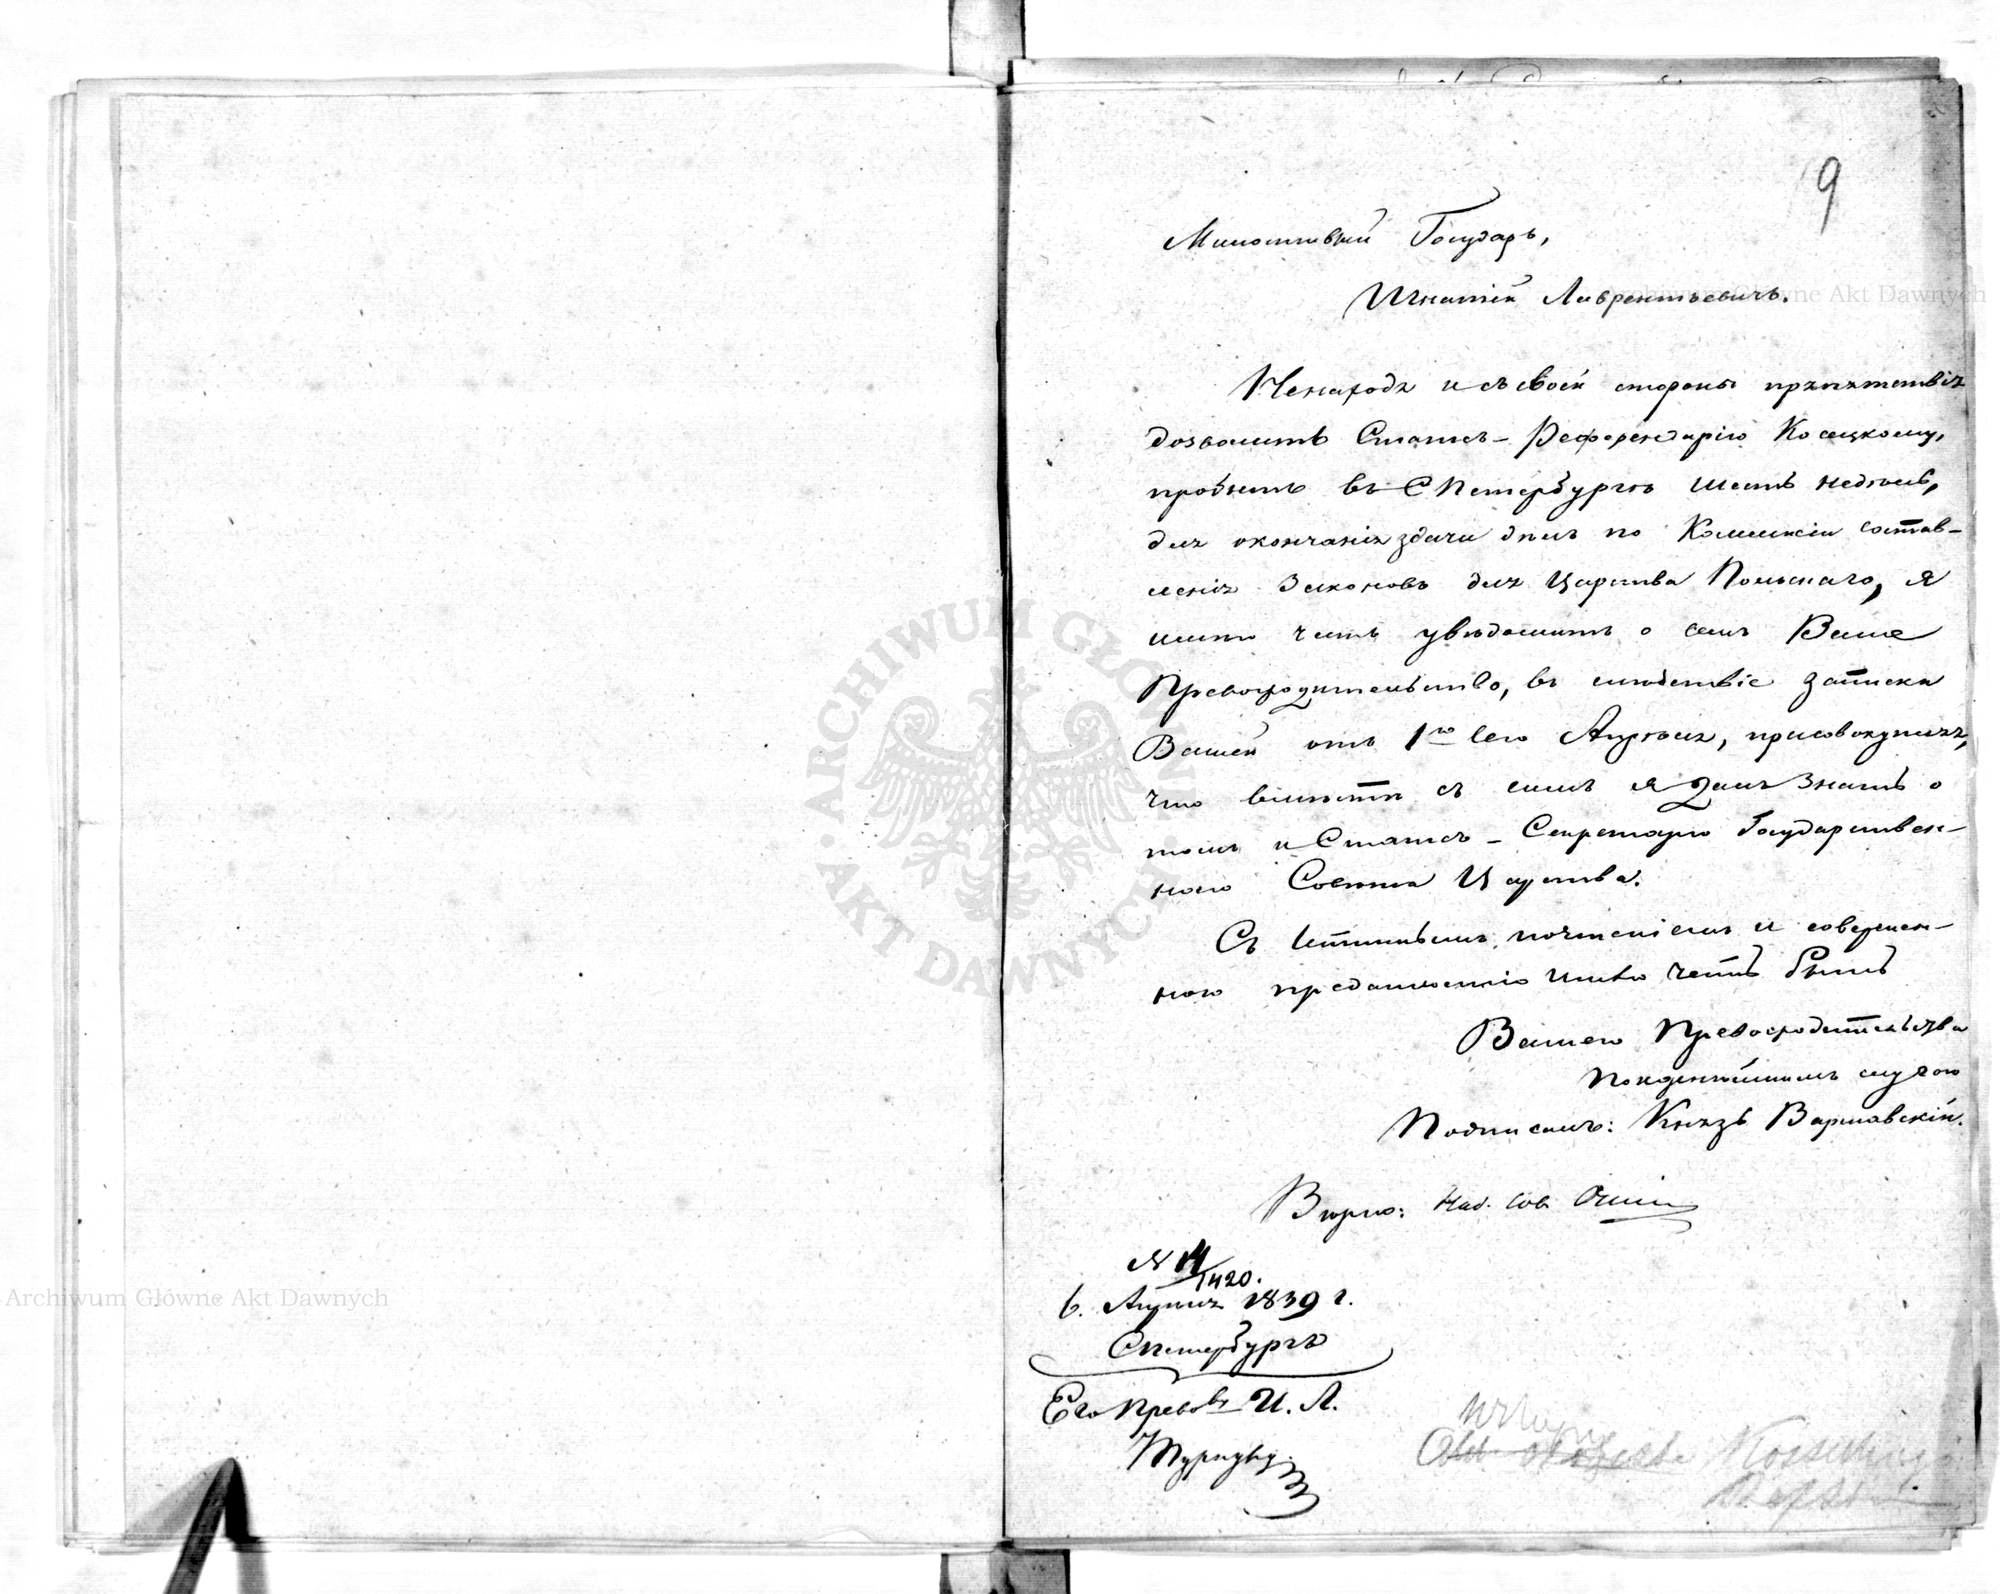 9
Милостивый Государь,
Игнатій Лаврентьевичъ.
Ненаходя и съ своей стороны препятствія
дозволить Статсъ-Референдарію Косецкому,
пробыть въ СПетербургѣ шесть недѣль,
для окончанія сдачи дѣлъ по Коммисіи состав-
ленія Законовъ для Царства Польскаго, я
имѣю честь увѣдомить о семъ Ваше
Превосходительство, въ слѣдствіе записки
Вашей отъ 1го сего Апрѣля, присовокупляя,
что вмѣстѣ съ симъ я далъ знать о
томъ и Статсъ-Секретарю Государствен-
наго Совѣта Царства.
Съ истиннымъ почтеніемъ и совершен-
ною преданностію имѣю честь быть
Вашего Превосходительства
покорнѣйшимъ слугою
Подписалъ: Князь Варшавскій.
Вѣрно: Над. Сов.
№ 14/1420.
6. Апрѣля 1839 г.
СПетербургъ
Его Превов И. Л.
Туркулу.
ARCHIWUM GŁÓWNE · AKT DAWNYCH ·
Archiwum Główne Akt Dawnych
Archiwum Główne Akt Dawnych